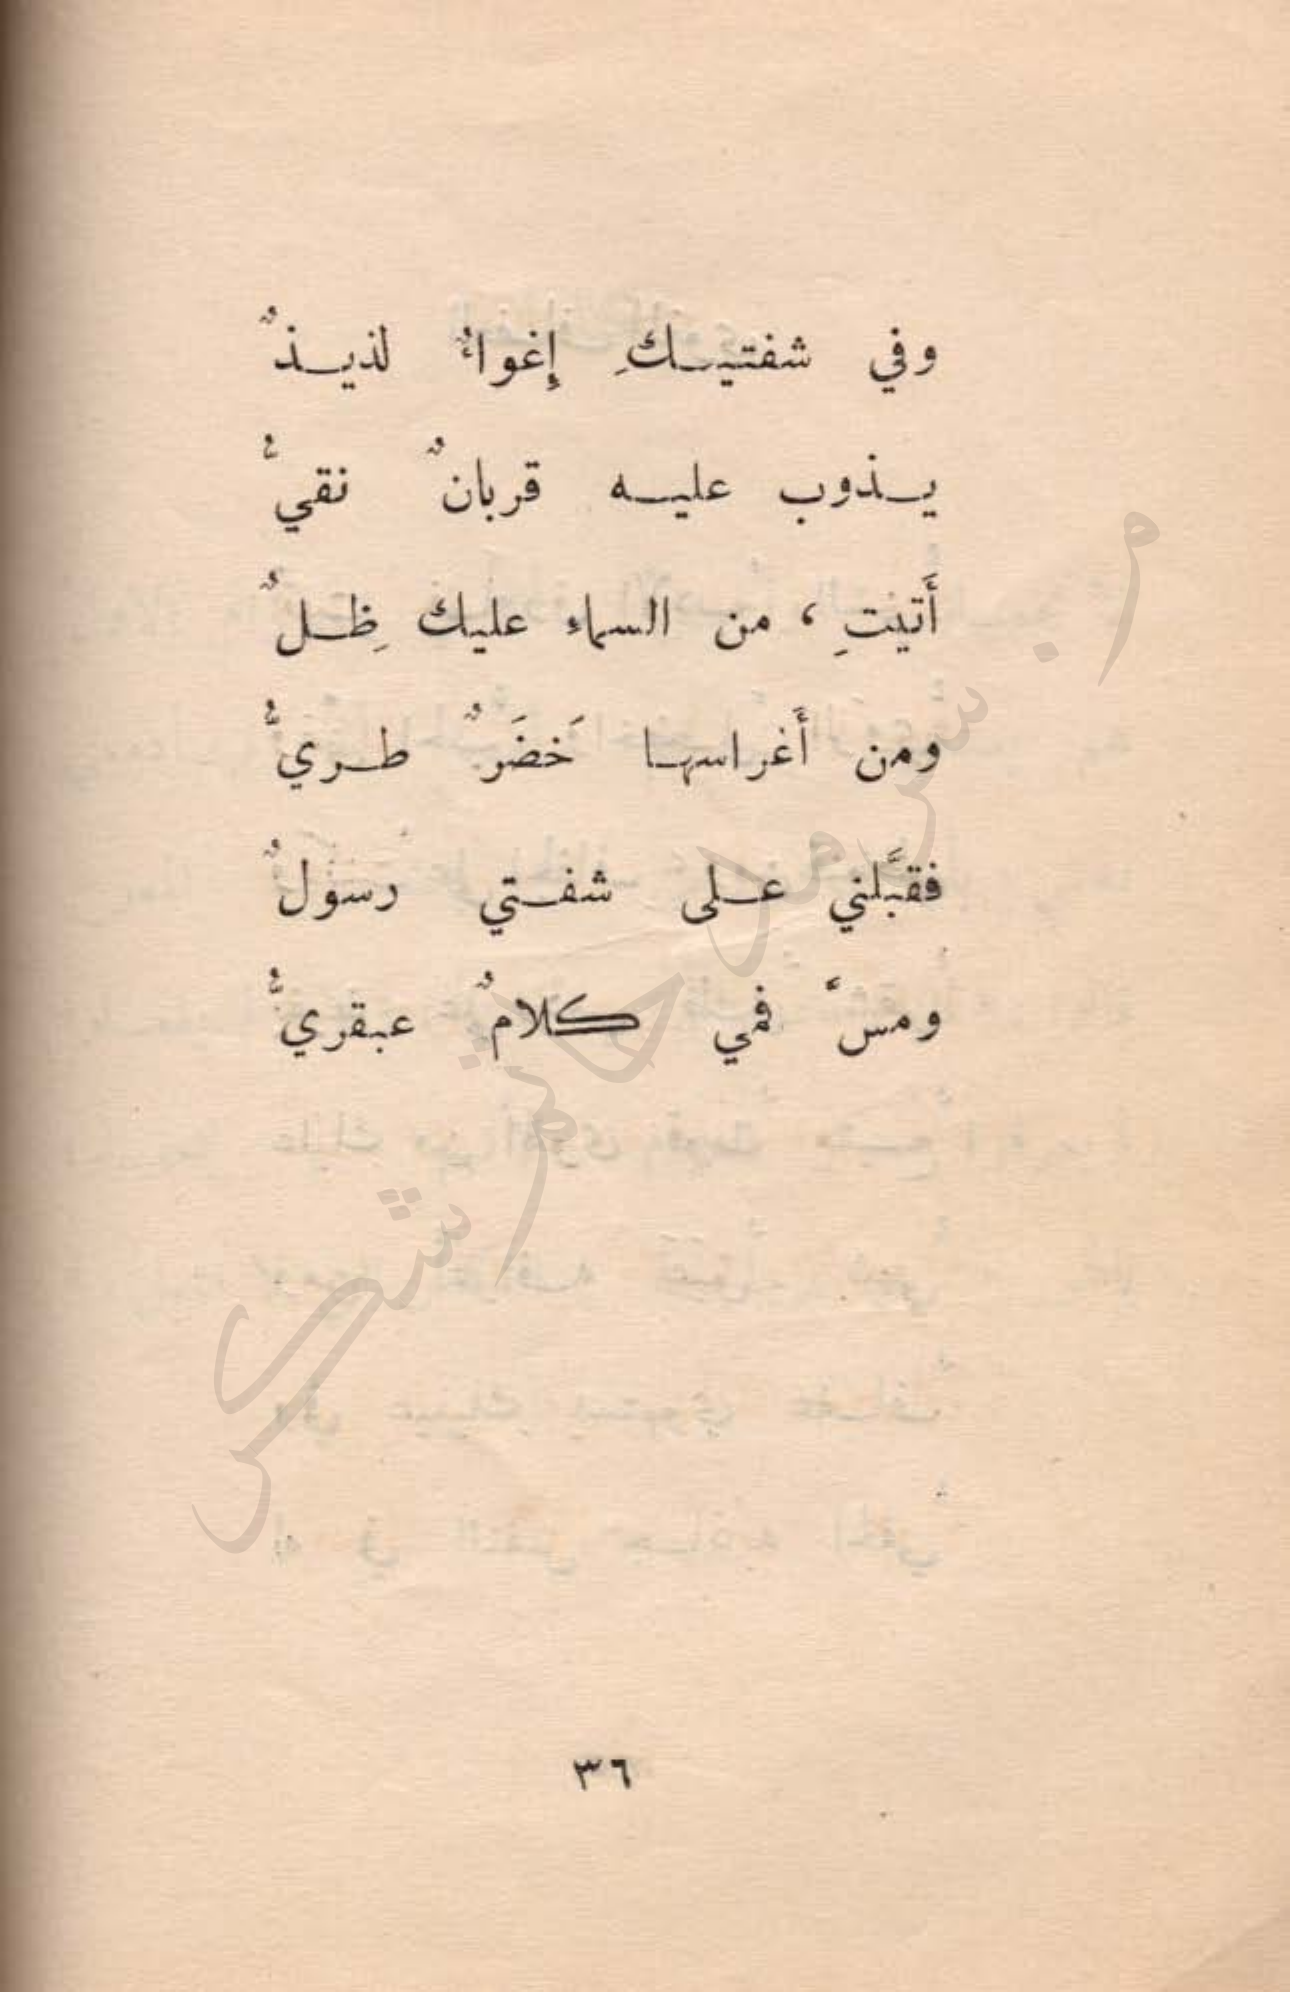 وفي شفتيكِ إِغواءٌ لذيذٌ
يذوب عليه قربانٌ نقيٌّ
أَتيتِ ، من السماءِ عليك ظِلٌّ
ومن أَغراسها خَضَرٌ طريٌّ
فقبَّلني على شفتي رسولٌ
ومسَّ فمي كلامٌ عبقريٌّ
من سرمد حاتم شكر
٣٦